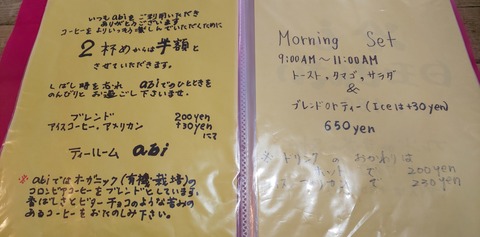 いつもabiをご利用いただき
ありがとうございます
コーヒーをよりいっそう楽しんでいただくために
2杯めからは半額と
させていただきます。
しばし時を忘れ abiでのひとときを
のんびりと お過ごし下さいませ.
ブレンド 200yen
アイスコーヒー,アメリカン +30yen
にて
ティールーム abi
※ abiではオーガニック(有機栽培)の
コロンビアコーヒーをブレンドとしています.
香ばしさとビターチョコのような苦みの
あるコーヒーをおたのしみ下さい。
Morning Set
9:00AM ~ 11:00AM
トースト,タマゴ,サラダ
&
ブレンドorティー(Iceは+30yen)
650yen
※ ドリンクのおかわりは
ホットで 200yen
で 230yen